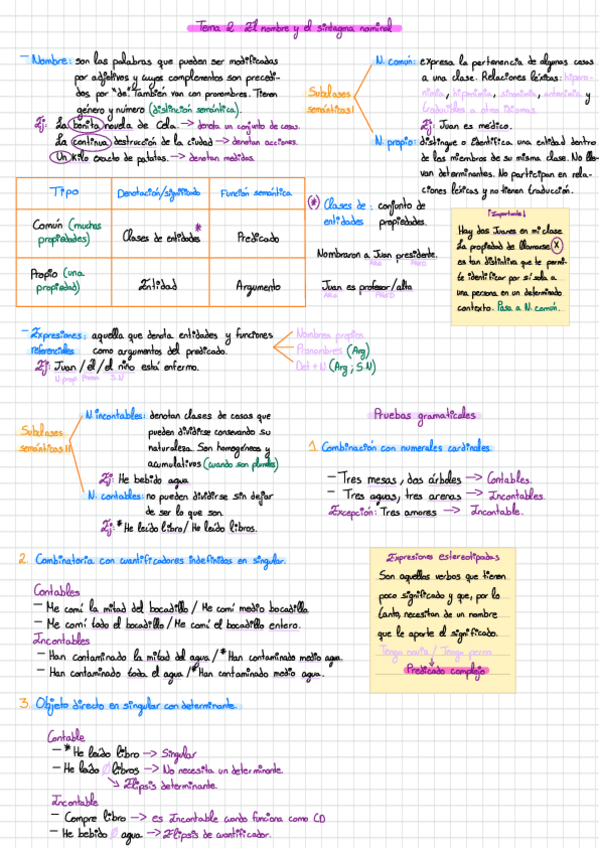 Tema 2 El nombre y el sintagma nominal
- Nombre: son las palabras que pueden ser modificadas
por adjetivos y cuyos complementos son precedi-
dos por "de". También van con pronombres. Tienen
género y número (distinción semántica).
Ej: La bonita novela de Cela. → denota un conjunto de cosas.
La continua destrucción de la ciudad → denotan acciones.
Un kilo exacto de patatas. → denotan medidas.
Subclases
semánticas I
N. común: expresa la pertenencia de algunas cosas
a una clase. Relaciones léxicas: hipero-
nimia, hiponimia, sinonimia, antonimia y
traducibles a otros idiomas.
Ej: Juan es médico.
N. propio: distingue o identifica una entidad dentro
de los miembros de su misma clase. No lle-
van determinantes. No participan en rela-
ciones léxicas y no tienen traducción.
Tipo
Denotación/significado
Función semántica
Común (muchas
propiedades)
Clases de entidades *
Predicado
Propio (una
propiedad)
Entidad
Argumento
(*) Clases de : conjunto de
entidades propiedades.
Nombraron a Juan presidente.
ARG PRED
Juan es profesor/alta
ARG PRED
¡Importante!
Hay dos Juanes en mi clase
La propiedad de llamarse X
es tan distintiva que te permi-
te identificar por sí sola a
una persona en un determinado
contexto. Pasa a N. común...
- Expresiones: aquella que denota entidades y funciones
referenciales como argumentos del predicado.
Ej: Juan / Él / el niño está enfermo.
N. prop Pronom S.N
Nombres propios
Pronombres (Arg)
Det + N (Arg ; S.N)
Subclases
semánticas II
N incontables: denotan clases de cosas que
pueden dividirse conservando su
naturaleza. Son homogéneas y
acumulativos (cuando son plurales)
Ej: He bebido agua
N. contables: no pueden dividirse sin dejar
de ser lo que son.
Ej: * He leído libro / He leído libros.
Pruebas gramaticales
1. Combinación con numerales cardinales.
- Tres mesas, dos árboles → Contables.
- Tres aguas, tres arenas → Incontables.
Excepción: Tres amores → Incontable.
2. Combinatoria con cuantificadores indefinidos en singular.
Contables
- Me comí la mitad del bocadillo / Me comí medio bocadillo.
- Me comí todo el bocadillo / Me comí el bocadillo entero.
Incontables
- Han contaminado la mitad del agua / * Han contaminado medio agua.
- Han contaminado toda el agua / * Han contaminado medio agua.
Expresiones estereotipadas
Son aquellos verbos que tienen
poco significado y que, por lo
tanto, necesitan de un nombre
que le aporte el significado.
Tengo novia / Tengo perro
Predicado complejo
3. Objeto directo en singular con determinante.
Contable
- * He leído libro → Singular
- He leído Ø libros → No necesita un determinante.
↘ Elipsis determinante.
Incontable
- Compre libro → es Incontable cuando funciona como CD
- He bebido Ø agua → Elipsis de cuantificador.